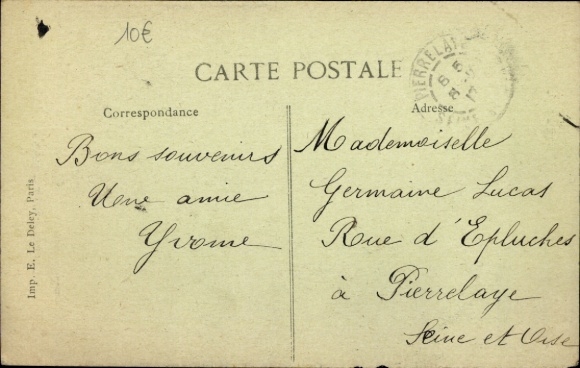 10€
CARTE POSTALE
Correspondance
Adresse
Bons souvenirs
Une amie
Yvonne
Mademoiselle
Germaine Lucas
Rue d'Epluches
à Pierrelaye
Seine et Oise
Imp. E. Le Deley, Paris
PIERRELAYE